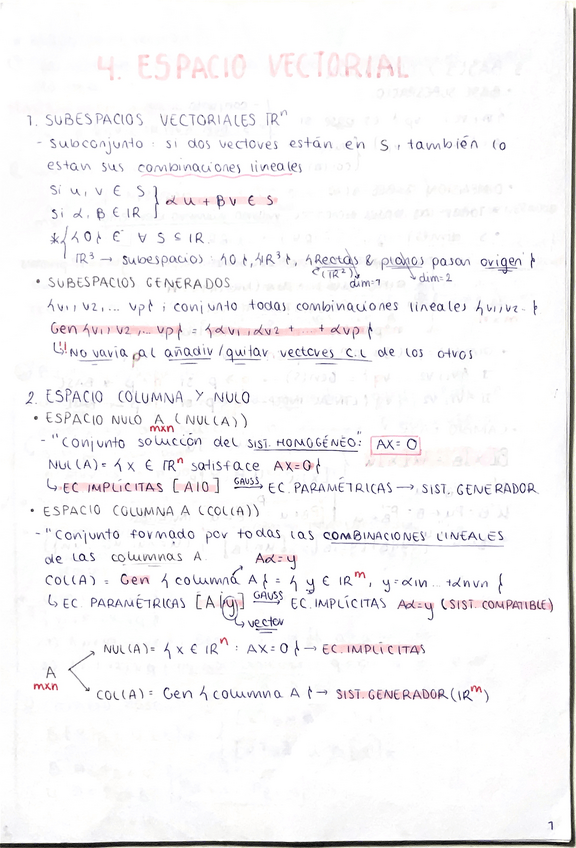 4. ESPACIO VECTORIAL
1. SUBESPACIOS VECTORIALES ℝⁿ
- Subconjunto: si dos vectores están en S, también lo
están sus combinaciones lineales
Si u, v ∈ S } αu + βv ∈ S
Si α, β ∈ ℝ
* { {0} ∈ ∀ S ⊆ ℝ.
ℝ³ → subespacios: {0}, {ℝ³}, {Rectas & planos pasan origen}
(ℝ²) dim=1 dim=2
• SUBESPACIOS GENERADOS
{v1, v2, ... vp} ; conjunto todas combinaciones lineales {v1, v2..}
Gen {v1, v2 ... vp} = {αv1, αv2 + ... + αvp}
↳!! No varía al añadir/quitar vectores C.L de los otros
2. ESPACIO COLUMNA Y NULO
• ESPACIO NULO A (NUL(A))
mxn
- "Conjunto solución del SIST. HOMOGÉNEO": AX=0
NUL(A) = {x ∈ ℝⁿ satisface AX=0}
↳ EC IMPLÍCITAS [A|0] GAUSS→ EC. PARAMÉTRICAS → SIST. GENERADOR
• ESPACIO COLUMNA A (COL(A))
- "Conjunto formado por todas las COMBINACIONES LINEALES
de las columnas A. Aα=y
COL(A) = Gen {columna A} = {y ∈ ℝᵐ, y=α1n... +αnvn}
↳ EC. PARAMÉTRICAS [A|y] GAUSS→ EC. IMPLÍCITAS Aα=y (SIST. COMPATIBLE)
↳ vector
NUL(A) = {x ∈ ℝⁿ : AX=0} → EC. IMPLÍCITAS
A
mxn
COL(A) = Gen {columna A} → SIST. GENERADOR (ℝᵐ)
1